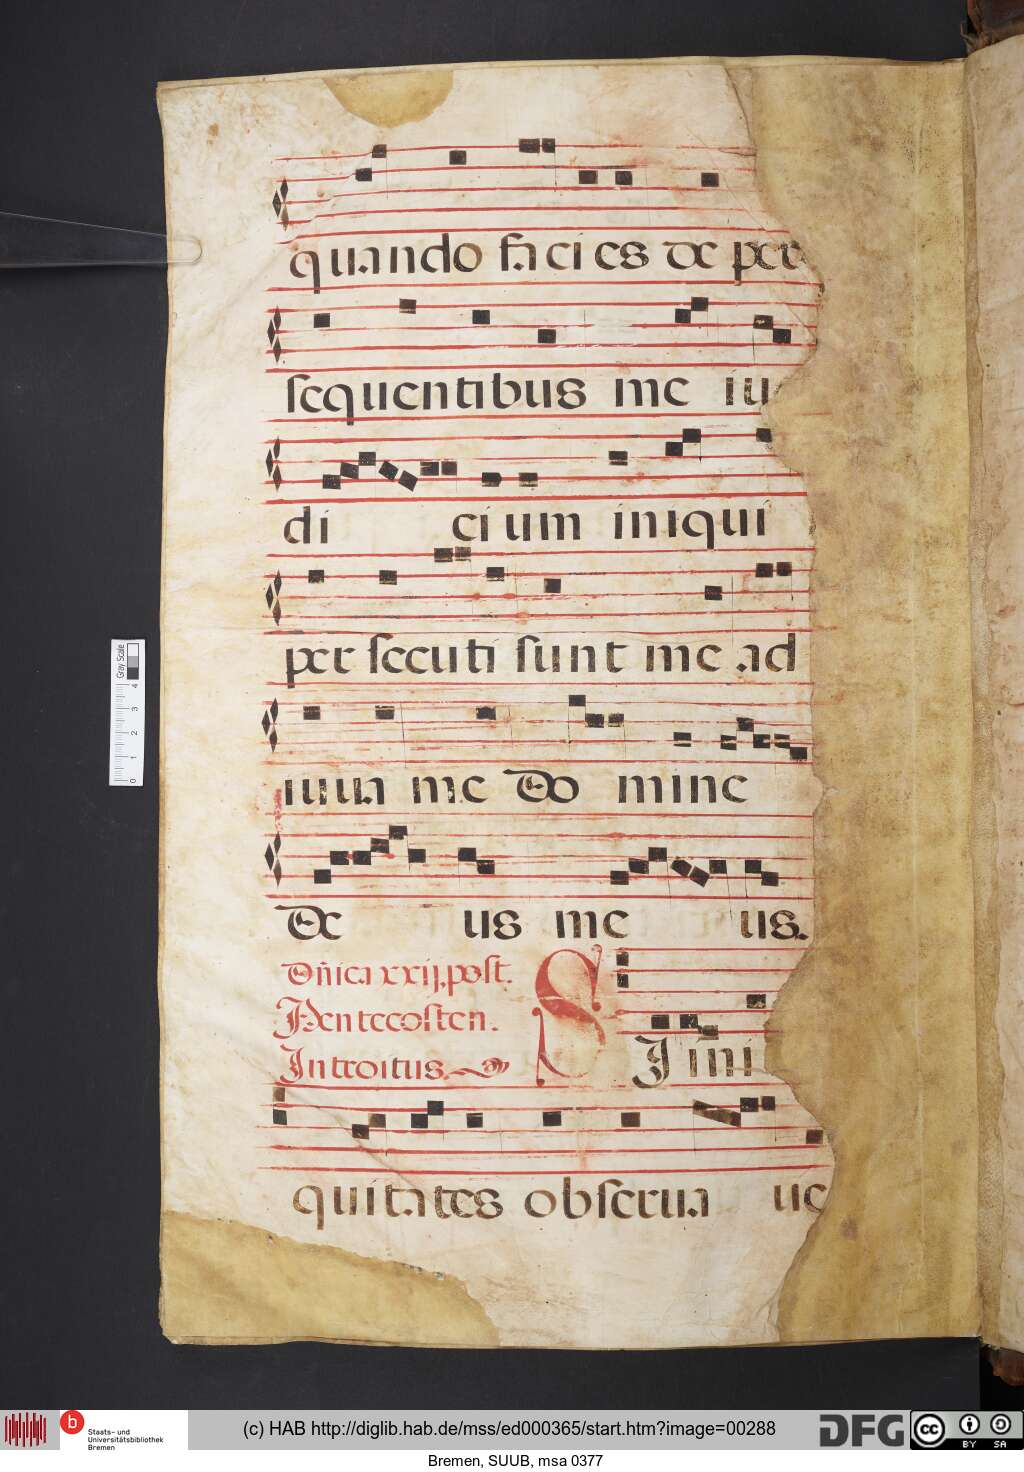 quando facies de per
sequentibus me iu
di cium iniqui
per secuti sunt me ad
iuua me Do mine
De us me us.
Dñica xxij. post.
Pentecosten.
Introitus.
SJ iñi
quitates obserua ue
Gray Scale
4
3
2
1
0
b
Staats- und
Universitätsbibliothek
Bremen
(c) HAB http://diglib.hab.de/mss/ed000365/start.htm?image=00288
DFG
cc BY SA
Bremen, SUUB, msa 0377